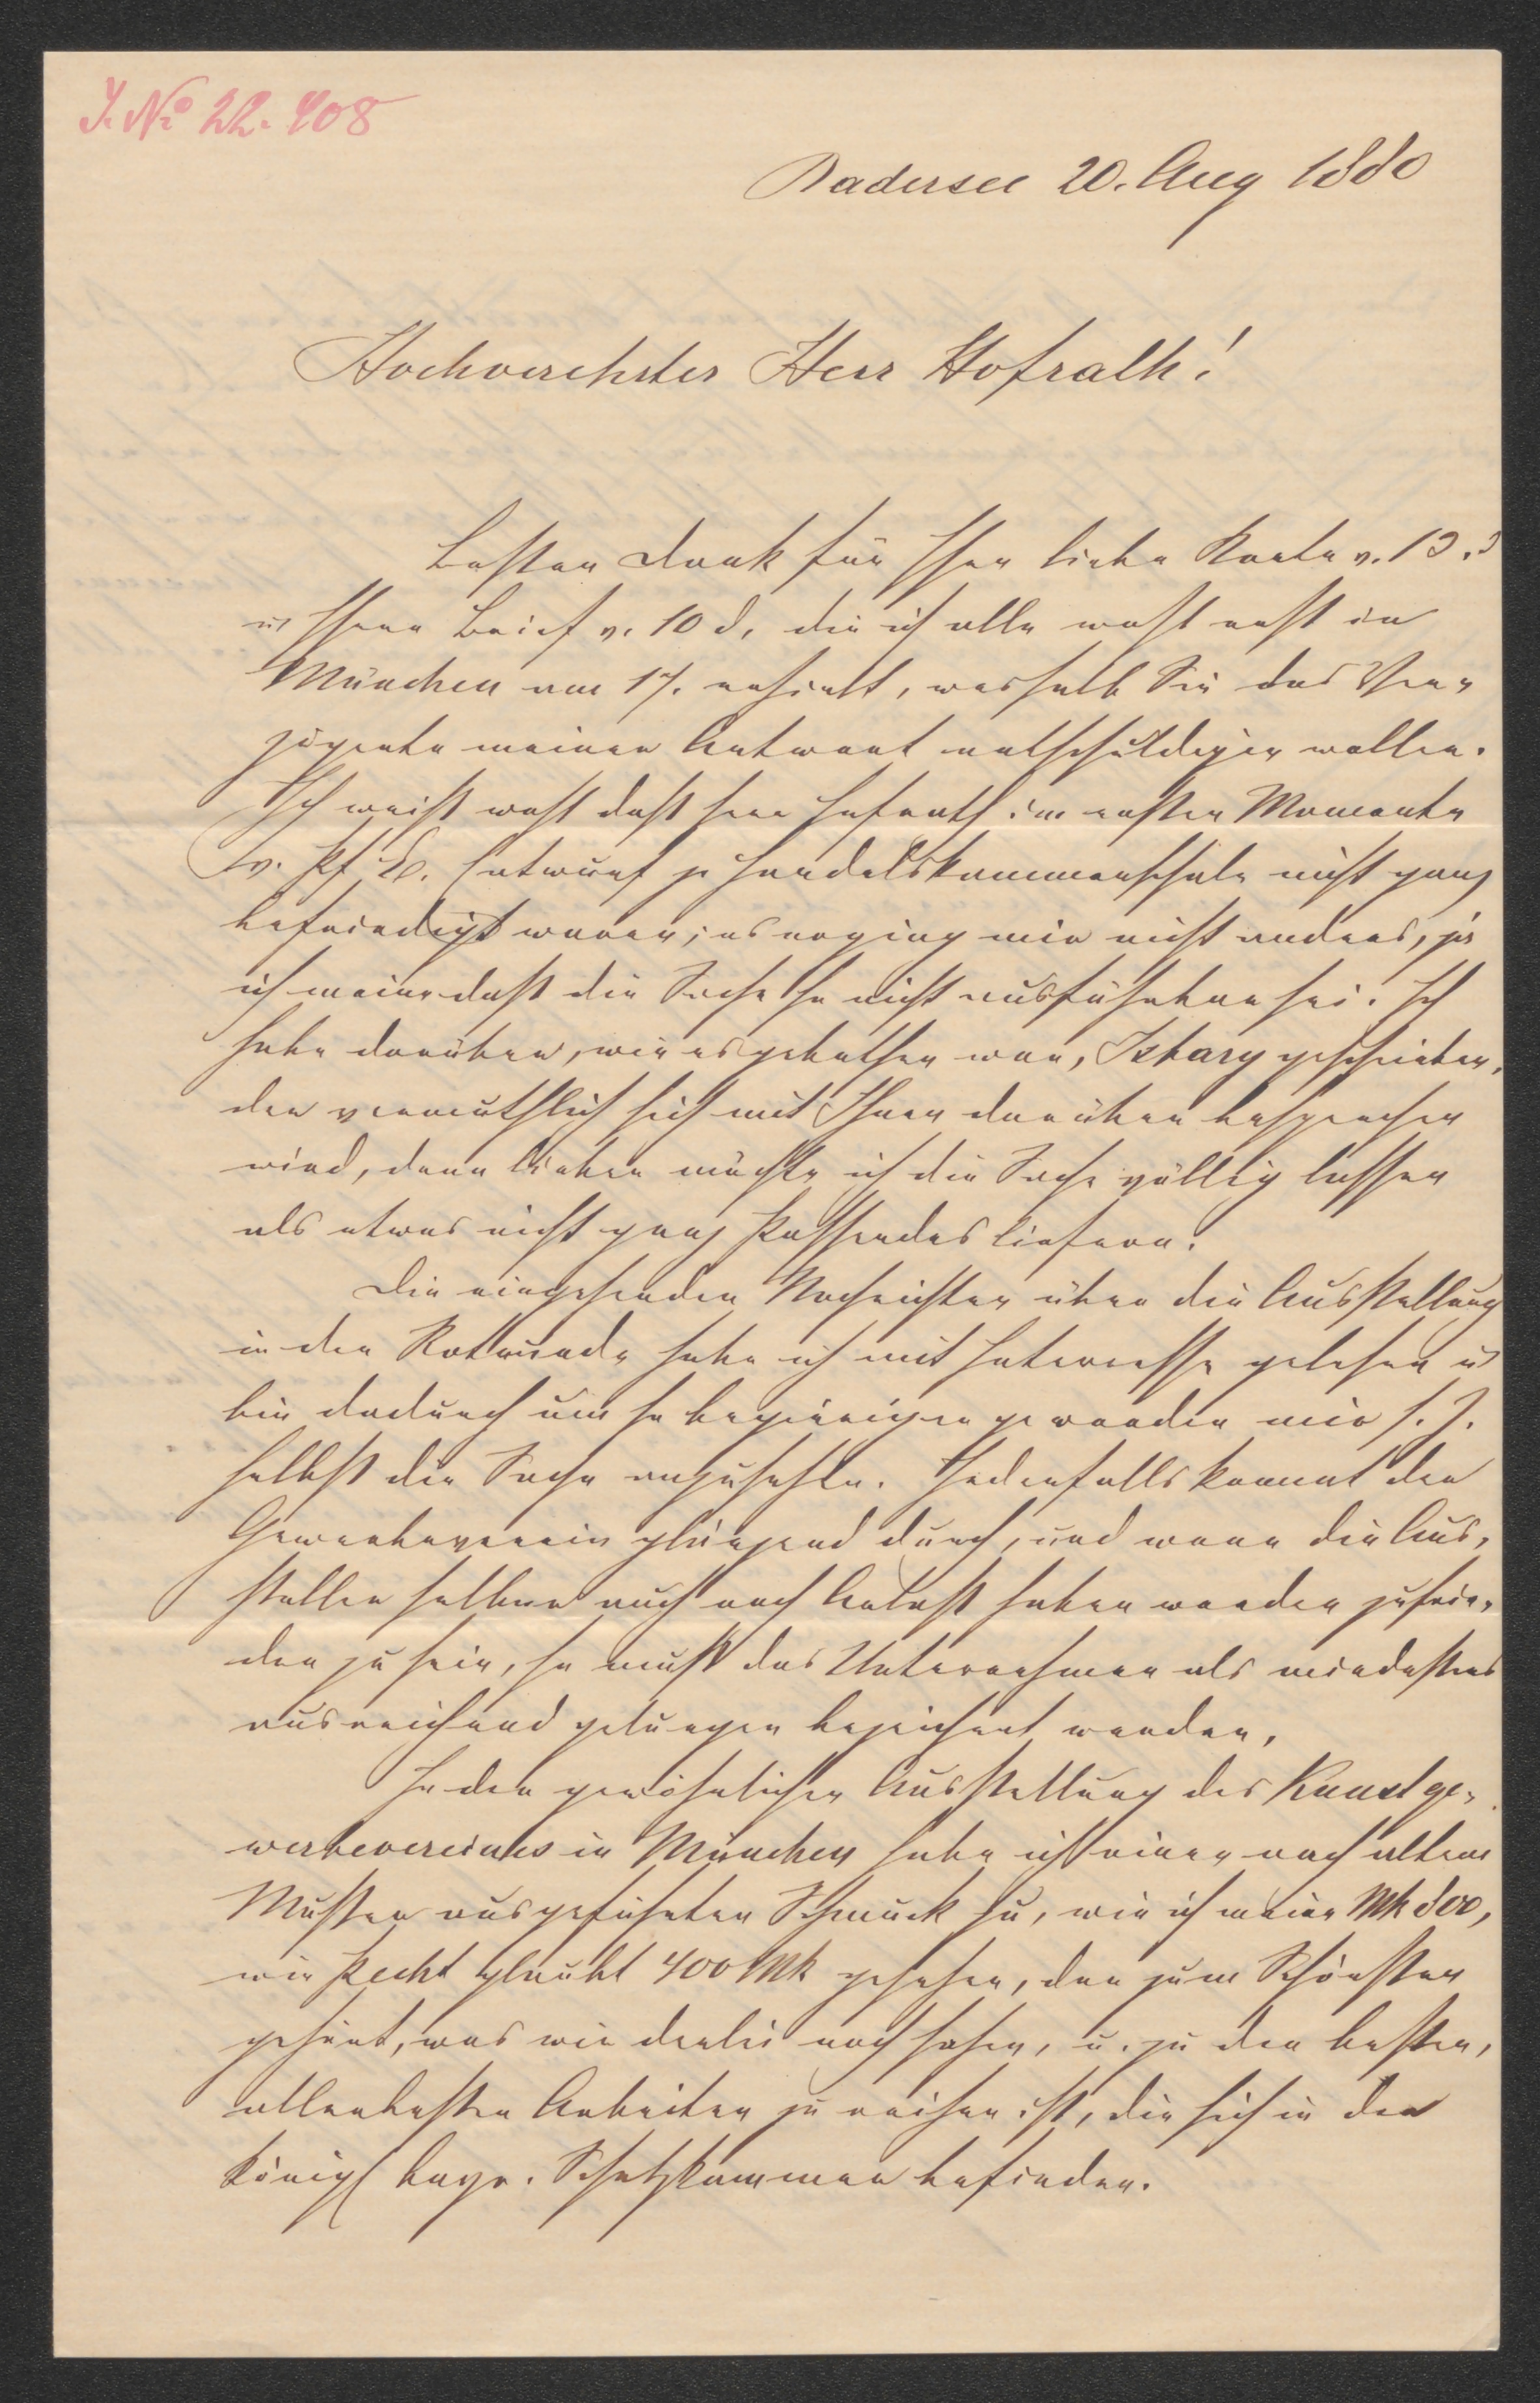 J. No 22.408
Badersee 20. Aug 1880
Hochverehrter Herr Hofrath!
Besten Dank für Ihre liebe Karte v. 13. d
u Ihren Brief v. 10 d, die ich alle wohl erst in
München am 17. erhielt, weshalb Sie das Ver
zögerte meiner Antwort entschuldigen wollen.
Ich weiß wohl daß Herr Hofrath im ersten Momente
v. Entwurf z Handelskammerschule nicht ganz
befriedigt waren; es erging mir nicht anders, ja
ich meine daß die Sache so nicht ausführbar sei. Ich
habe darüber, wie es gebethen war, Isbary geschrieben,
der vermuthlich sich mit Ihnen darüber besprechen
wird, denn lieber möchte ich die Sache völlig lassen
als etwas nicht ganz Passendes liefern.
Die eingehenden Nachrichten über die Ausstellung
in der Rotunde habe ich mit Interesse gelesen u
bin dadurch um so begieriger geworden mir s. Z.
selbst die Sache anzusehen. Jedenfalls kommt der
Gewerbeverein glänzend durch, und wenn die Aus-
steller selber auch noch Anlaß haben werden zufrie-
den zu sein, so muß das Unternehmen als mindestens
ausreichend gelungen bezeichnet werden.
In der gewöhnlichen Ausstellung des Kunstge-
werbevereines in München habe ich einen nach altem
Muster ausgeführten Schmuck zu, wie ich meine Mk 800,
wie Pecht glaubt 400 Mk gesehen, der zum Schönsten
gehört, was wir derlei noch sahen, u. zu den besten,
allerbesten Arbeiten zu reihen ist, die sich in der
königl bayr. Schatzkammer befinden.